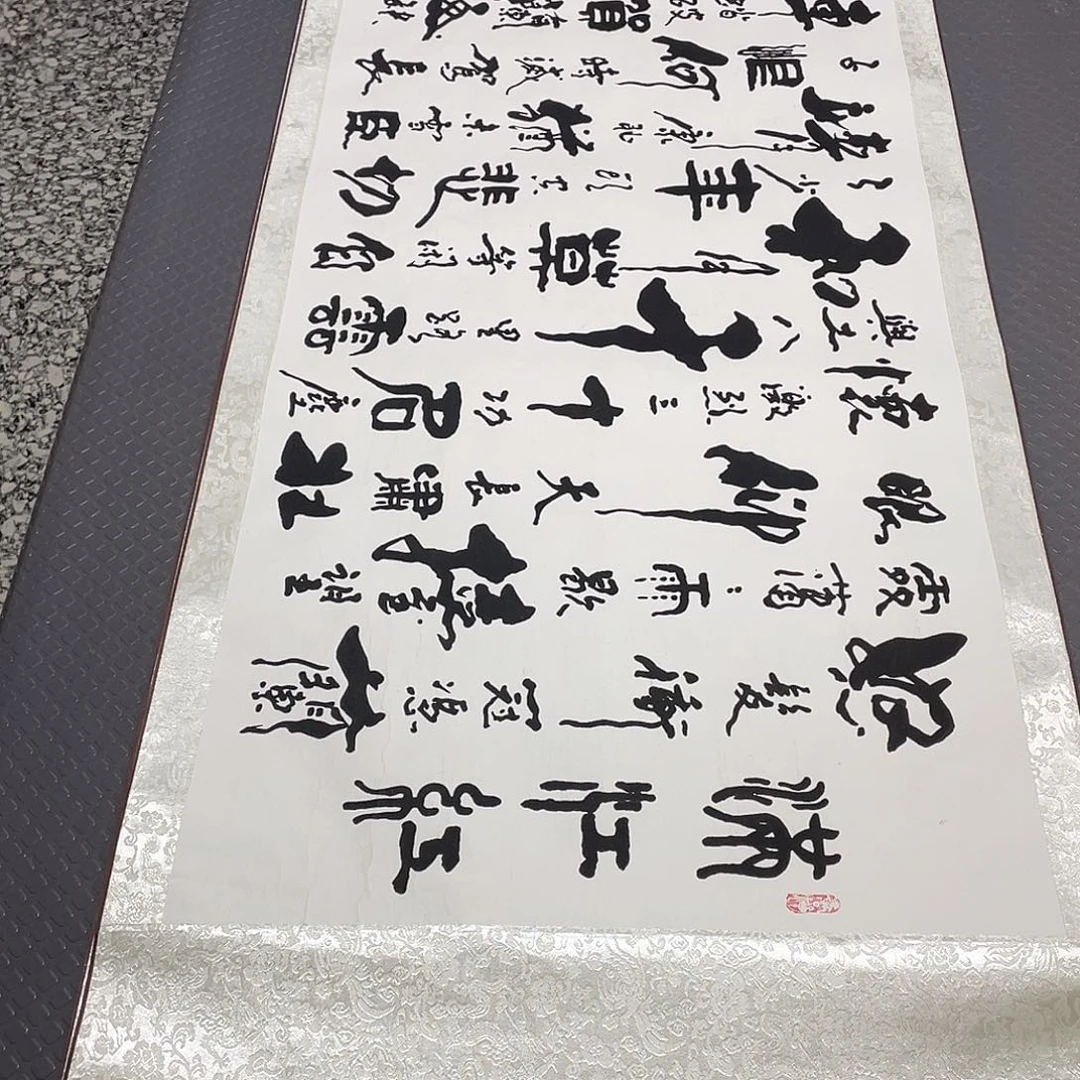 滿江紅
怒髮衝冠憑闌
處瀟:雨歇擡望
眼仰天長嘯壯
懷激烈三十功名塵
與土八千里路雲
和月莫等閒白
了少年頭空悲切
靖康恥猶未雪臣
子恨何時滅駕長
車踏破賀蘭山缺